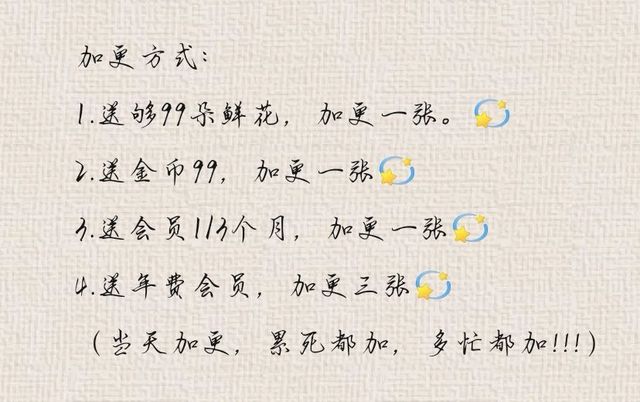 加更方式：
1.送够99朵鲜花，加更一张。
2.送金币99，加更一张
3.送会员1/3个月，加更一张
4.送年费会员，加更三张
（当天加更，累死都加，多忙都加!!!）